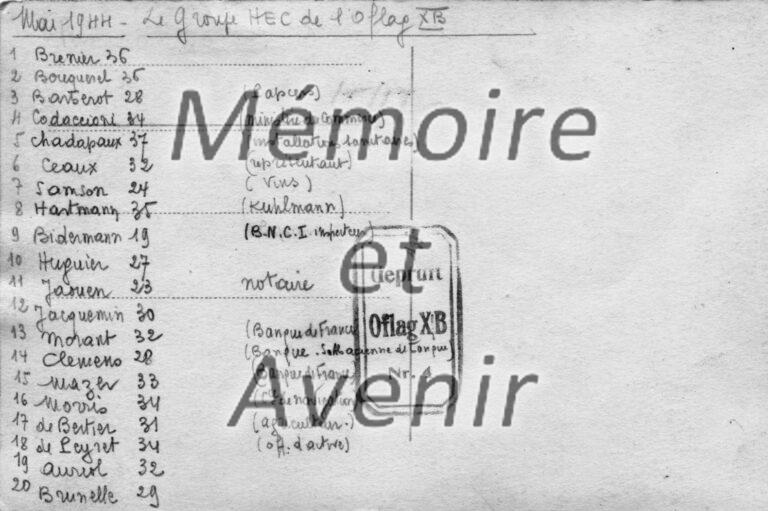 Mai 1944 - Le Groupe HEC de l'Oflag XB
1 Brenier 36
2 Bouquerel 36
3 Barberot 28 (Papiers)
4 Codaccioni 34 (ministère du Commerce)
5 Chadapaux 37 (installations sanitaires)
6 Ceaux 32 (représentant)
7 Samson 24 (Vins)
8 Hartmann 35 (Kuhlmann)
9 Bidermann 19 (B.N.C.I. inspecteur)
10 Huguier 27
11 Jaouen 23 notaire
12 Jacquemin 30
13 Morant 32 (Banque de France)
14 Clemens 28 (Banque
15 Mazer 33 (Banque de France)
16 Morris 34 navigation)
17 de Bertier 31 (agriculteur.)
18 de Peyret 34 (off. d'active)
19 Auriol 32
20 Brunelle 29
Geprüft
Oflag XB
Nr. 4
Mémoire
et
Avenir